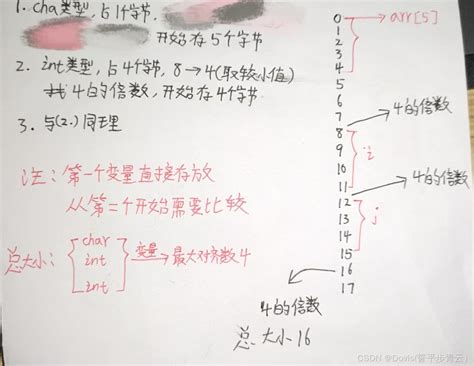 1. cha类型,占1个字节.
开始存5个字节
2. int类型,占4个字节, 8→4(取较小值)
4的倍数,开始存4个字节.
3. 与(2.)同理
注: 第一个变量直接存放
从第二个开始需要比较
总大小: {char int int} 变量→ 最大对齐数4
0 → arr[5]
1
2
3
4
5
6
7 4的倍数
8
9 i
10
11 4的倍数
12
13 j
14
15
16
17
4的倍数
总大小16
CSDN @Dovis(誓平步青云)